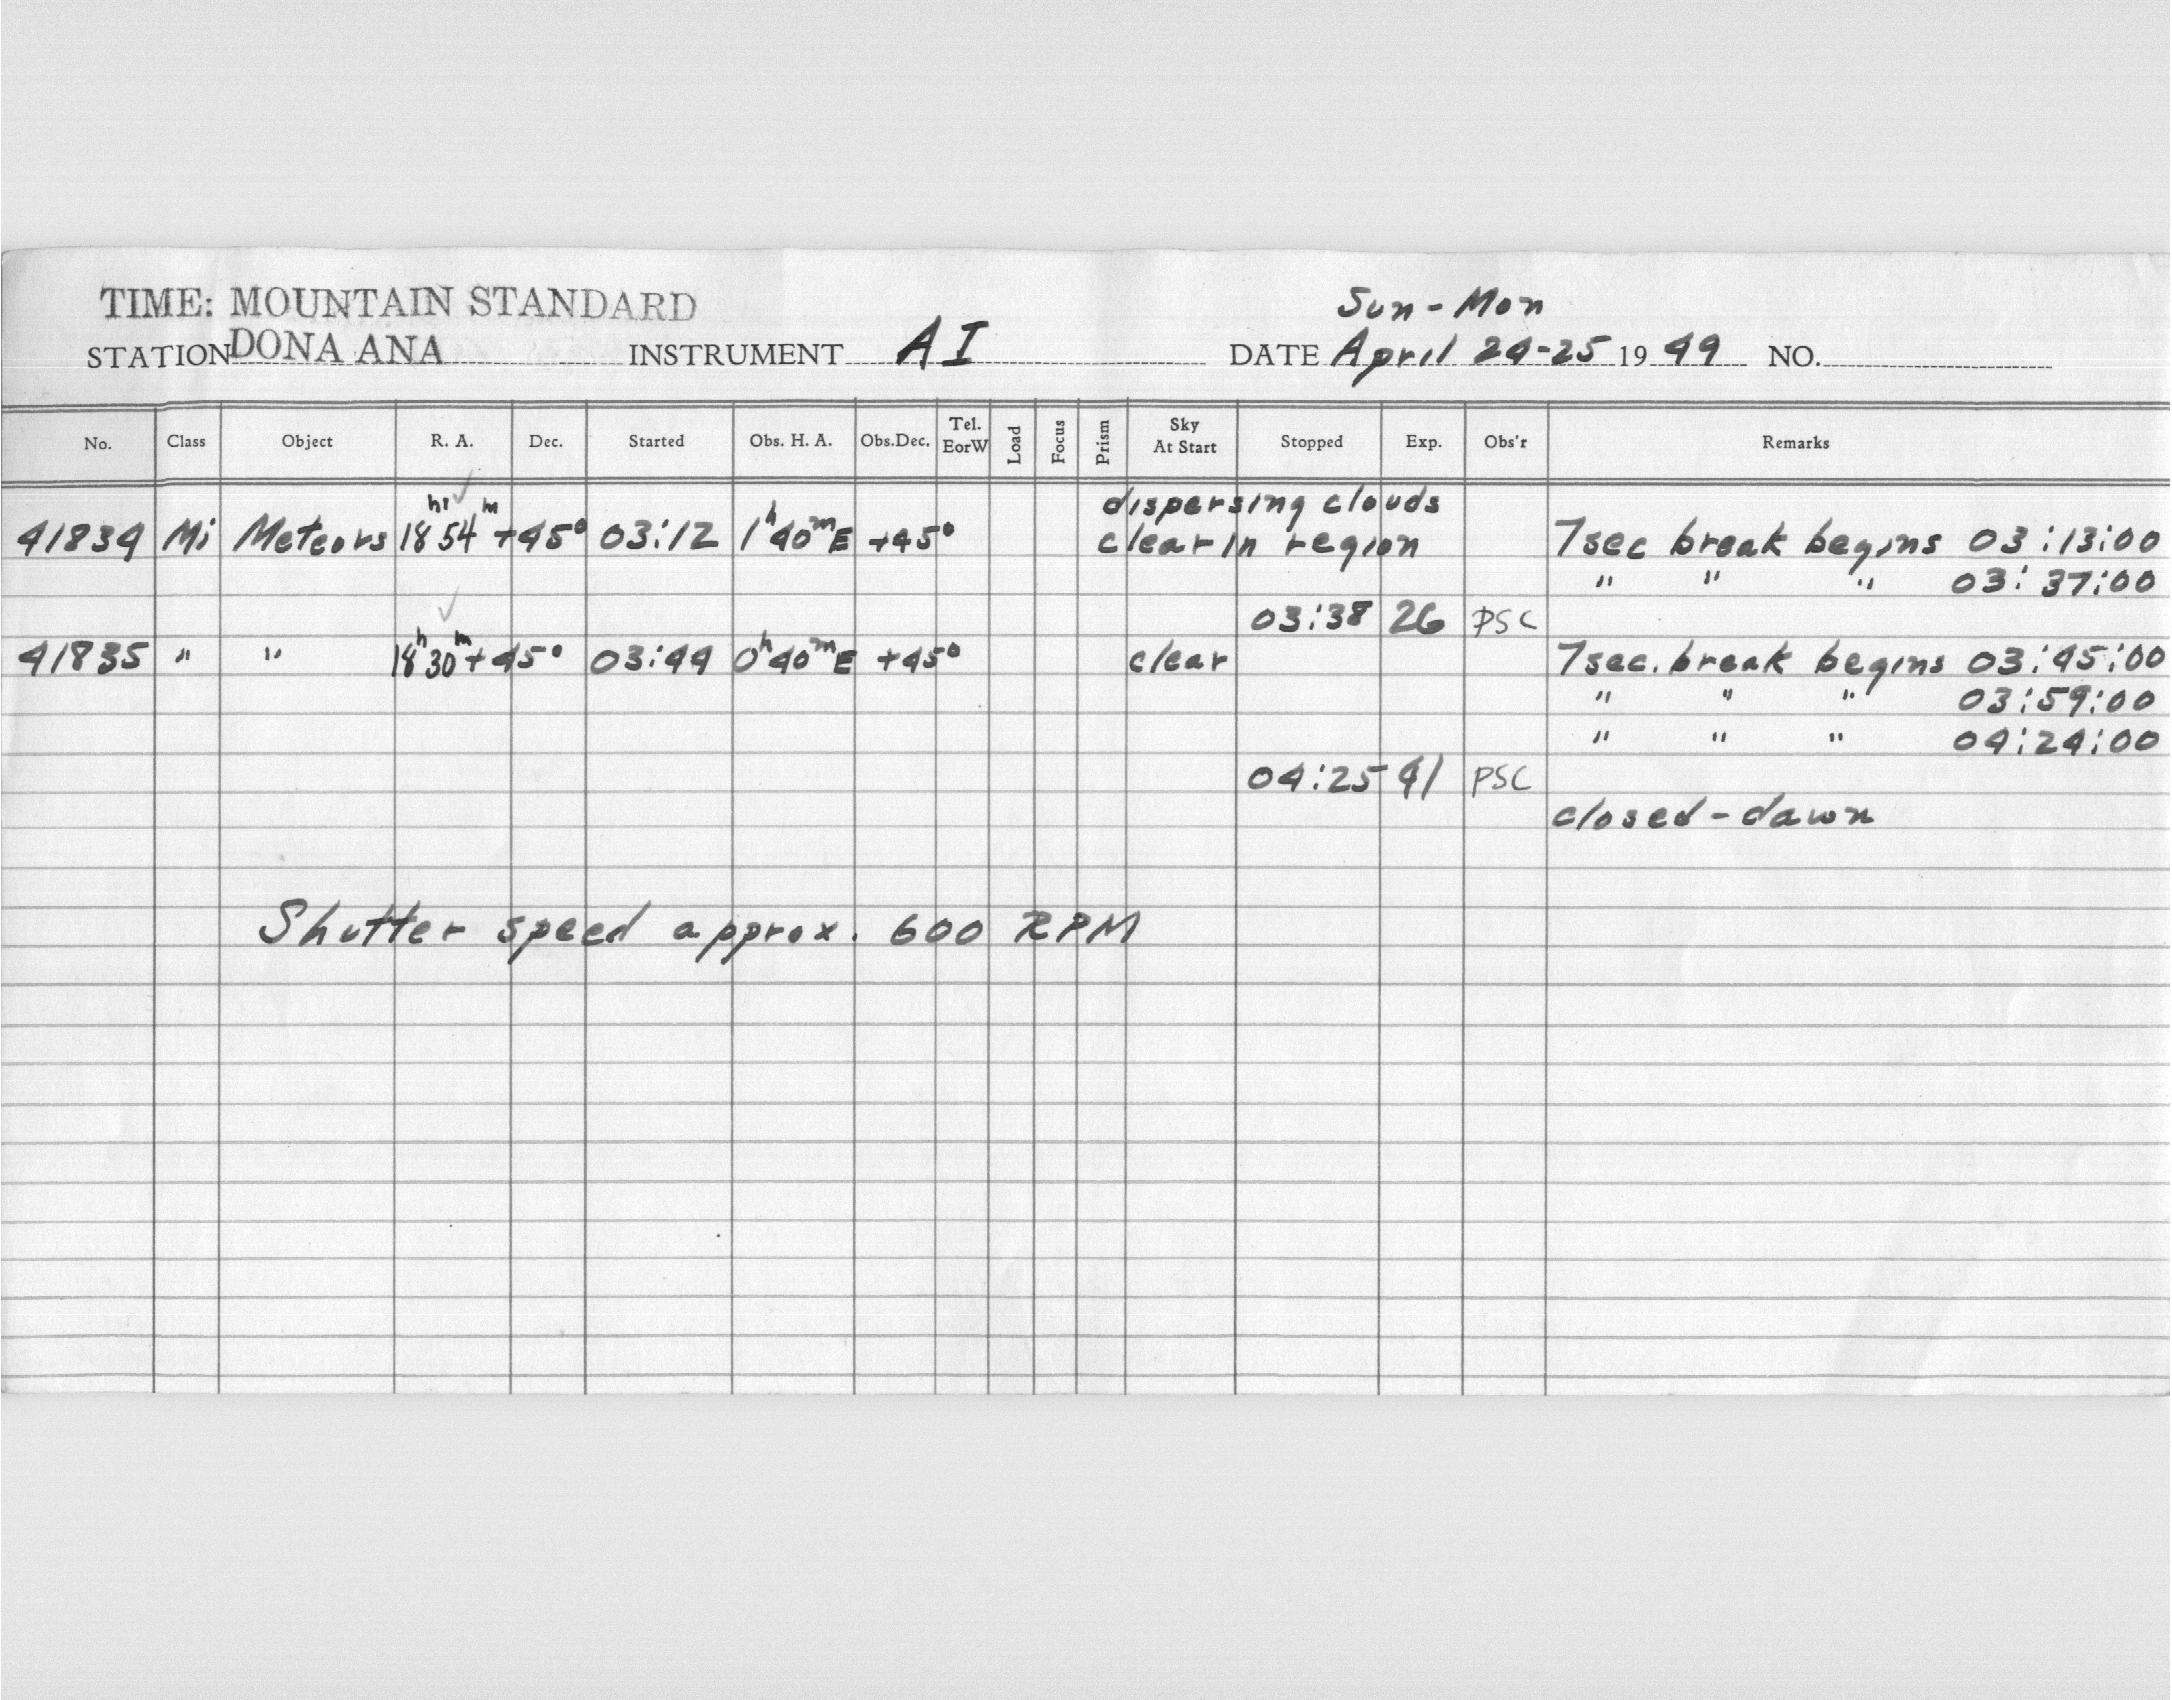 TIME: MOUNTAIN STANDARD
Sun-Mon
STATION DONA ANA INSTRUMENT AI DATE April 24-25 19 49 NO.
No. Class Object R. A. Dec. Started Obs. H. A. Obs.Dec. Tel. EorW Load Focus Prism Sky At Start Stopped Exp. Obs'r Remarks
dispersing clouds
41834 Mi Meteors 18hr 54m +45° 03:12 1h 40m E +45° clear in region 7sec break begins 03:13:00
" " " 03:37:00
03:38 26 PSC
41835 " " 18h 30m +45° 03:44 0h 40m E +45° clear 7sec. break begins 03:45:00
" " " 03:59:00
" " " 04:24:00
04:25 41 PSC
closed-dawn
Shutter speed approx. 600 RPM